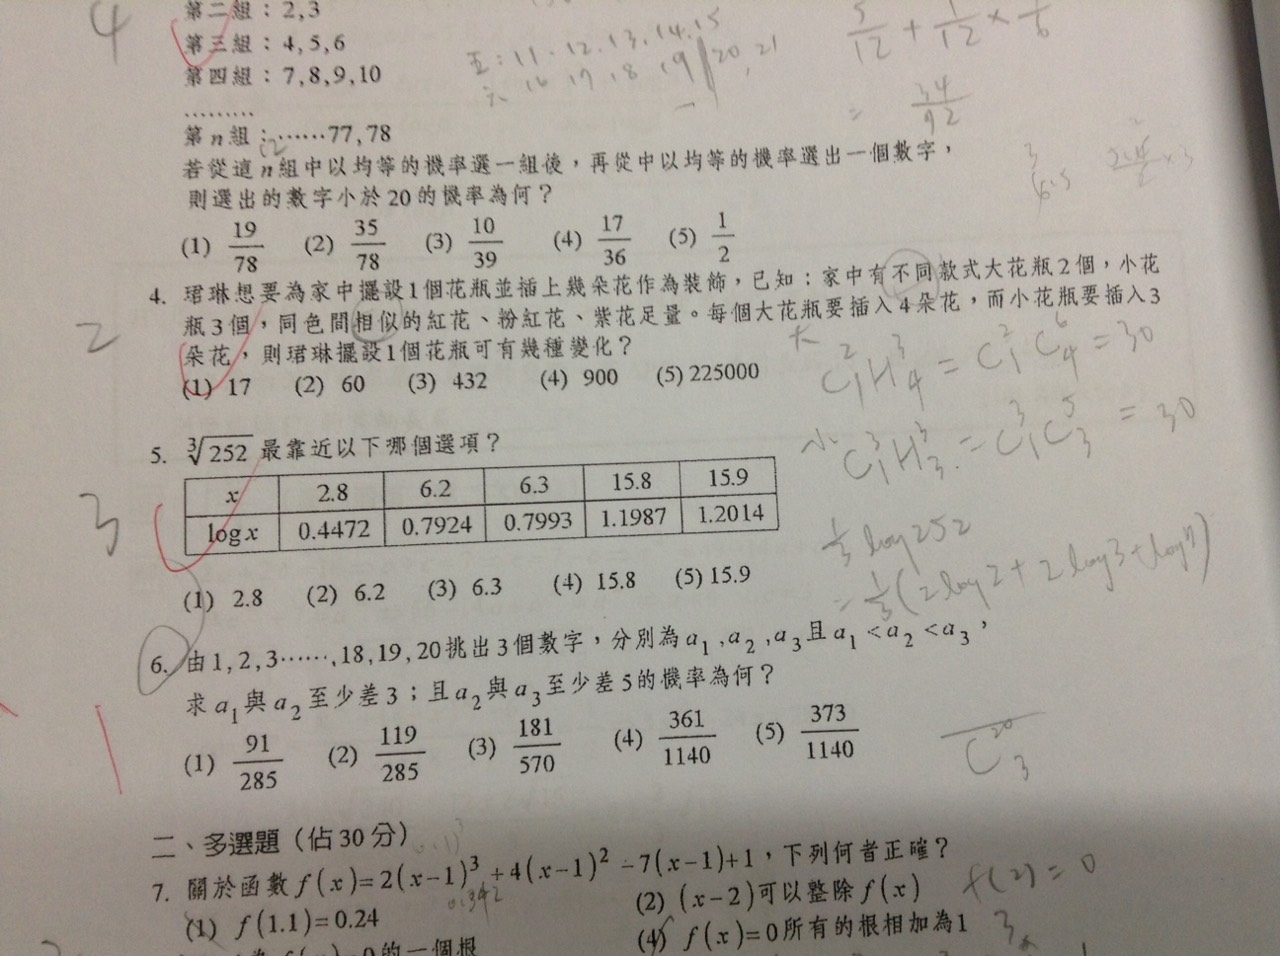 4
第二組：2,3
第三組：4,5,6
第四組：7,8,9,10
………
第n組：……77,78
12
五：11.12.13.14.15
六 16 17 18 19 | 20,21
5/12 + 1/12 ×
= 34/92
若從這n組中以均等的機率選一組後，再從中以均等的機率選出一個數字，
則選出的數字小於20的機率為何？
(1) 19/78 (2) 35/78 (3) 10/39 (4) 17/36 (5) 1/2
2
4. 珺琳想要為家中擺設1個花瓶並插上幾朵花作為裝飾，已知：家中有不同款式大花瓶2個，小花
瓶3個，同色間相似的紅花、粉紅花、紫花足量。每個大花瓶要插入4朵花，而小花瓶要插入3
朵花，則珺琳擺設1個花瓶可有幾種變化？
(1) 17 (2) 60 (3) 432 (4) 900 (5) 225000
大 C²₁H³₄ = C²₁C⁶₄ = 30
小 C³₁H³₃ = C³₁C⁵₃ = 30
3
5. ³√252 最靠近以下哪個選項？
x 2.8 6.2 6.3 15.8 15.9
log x 0.4472 0.7924 0.7993 1.1987 1.2014
(1) 2.8 (2) 6.2 (3) 6.3 (4) 15.8 (5) 15.9
1/3 log 252
= 1/3 (2log2 + 2log3 + log7)
1
6. 由1,2,3……,18,19,20挑出3個數字，分別為a₁,a₂,a₃且a₁<a₂<a₃，
求a₁與a₂至少差3；且a₂與a₃至少差5的機率為何？
(1) 91/285 (2) 119/285 (3) 181/570 (4) 361/1140 (5) 373/1140
C²⁰₃
二、多選題（佔30分）
7. 關於函數f(x)=2(x−1)³+4(x−1)²−7(x−1)+1，下列何者正確？
(1) f(1.1)=0.24 (2) (x−2)可以整除f(x)
f(2)=0
(4) f(x)=0所有的根相加為1
=0的一個根